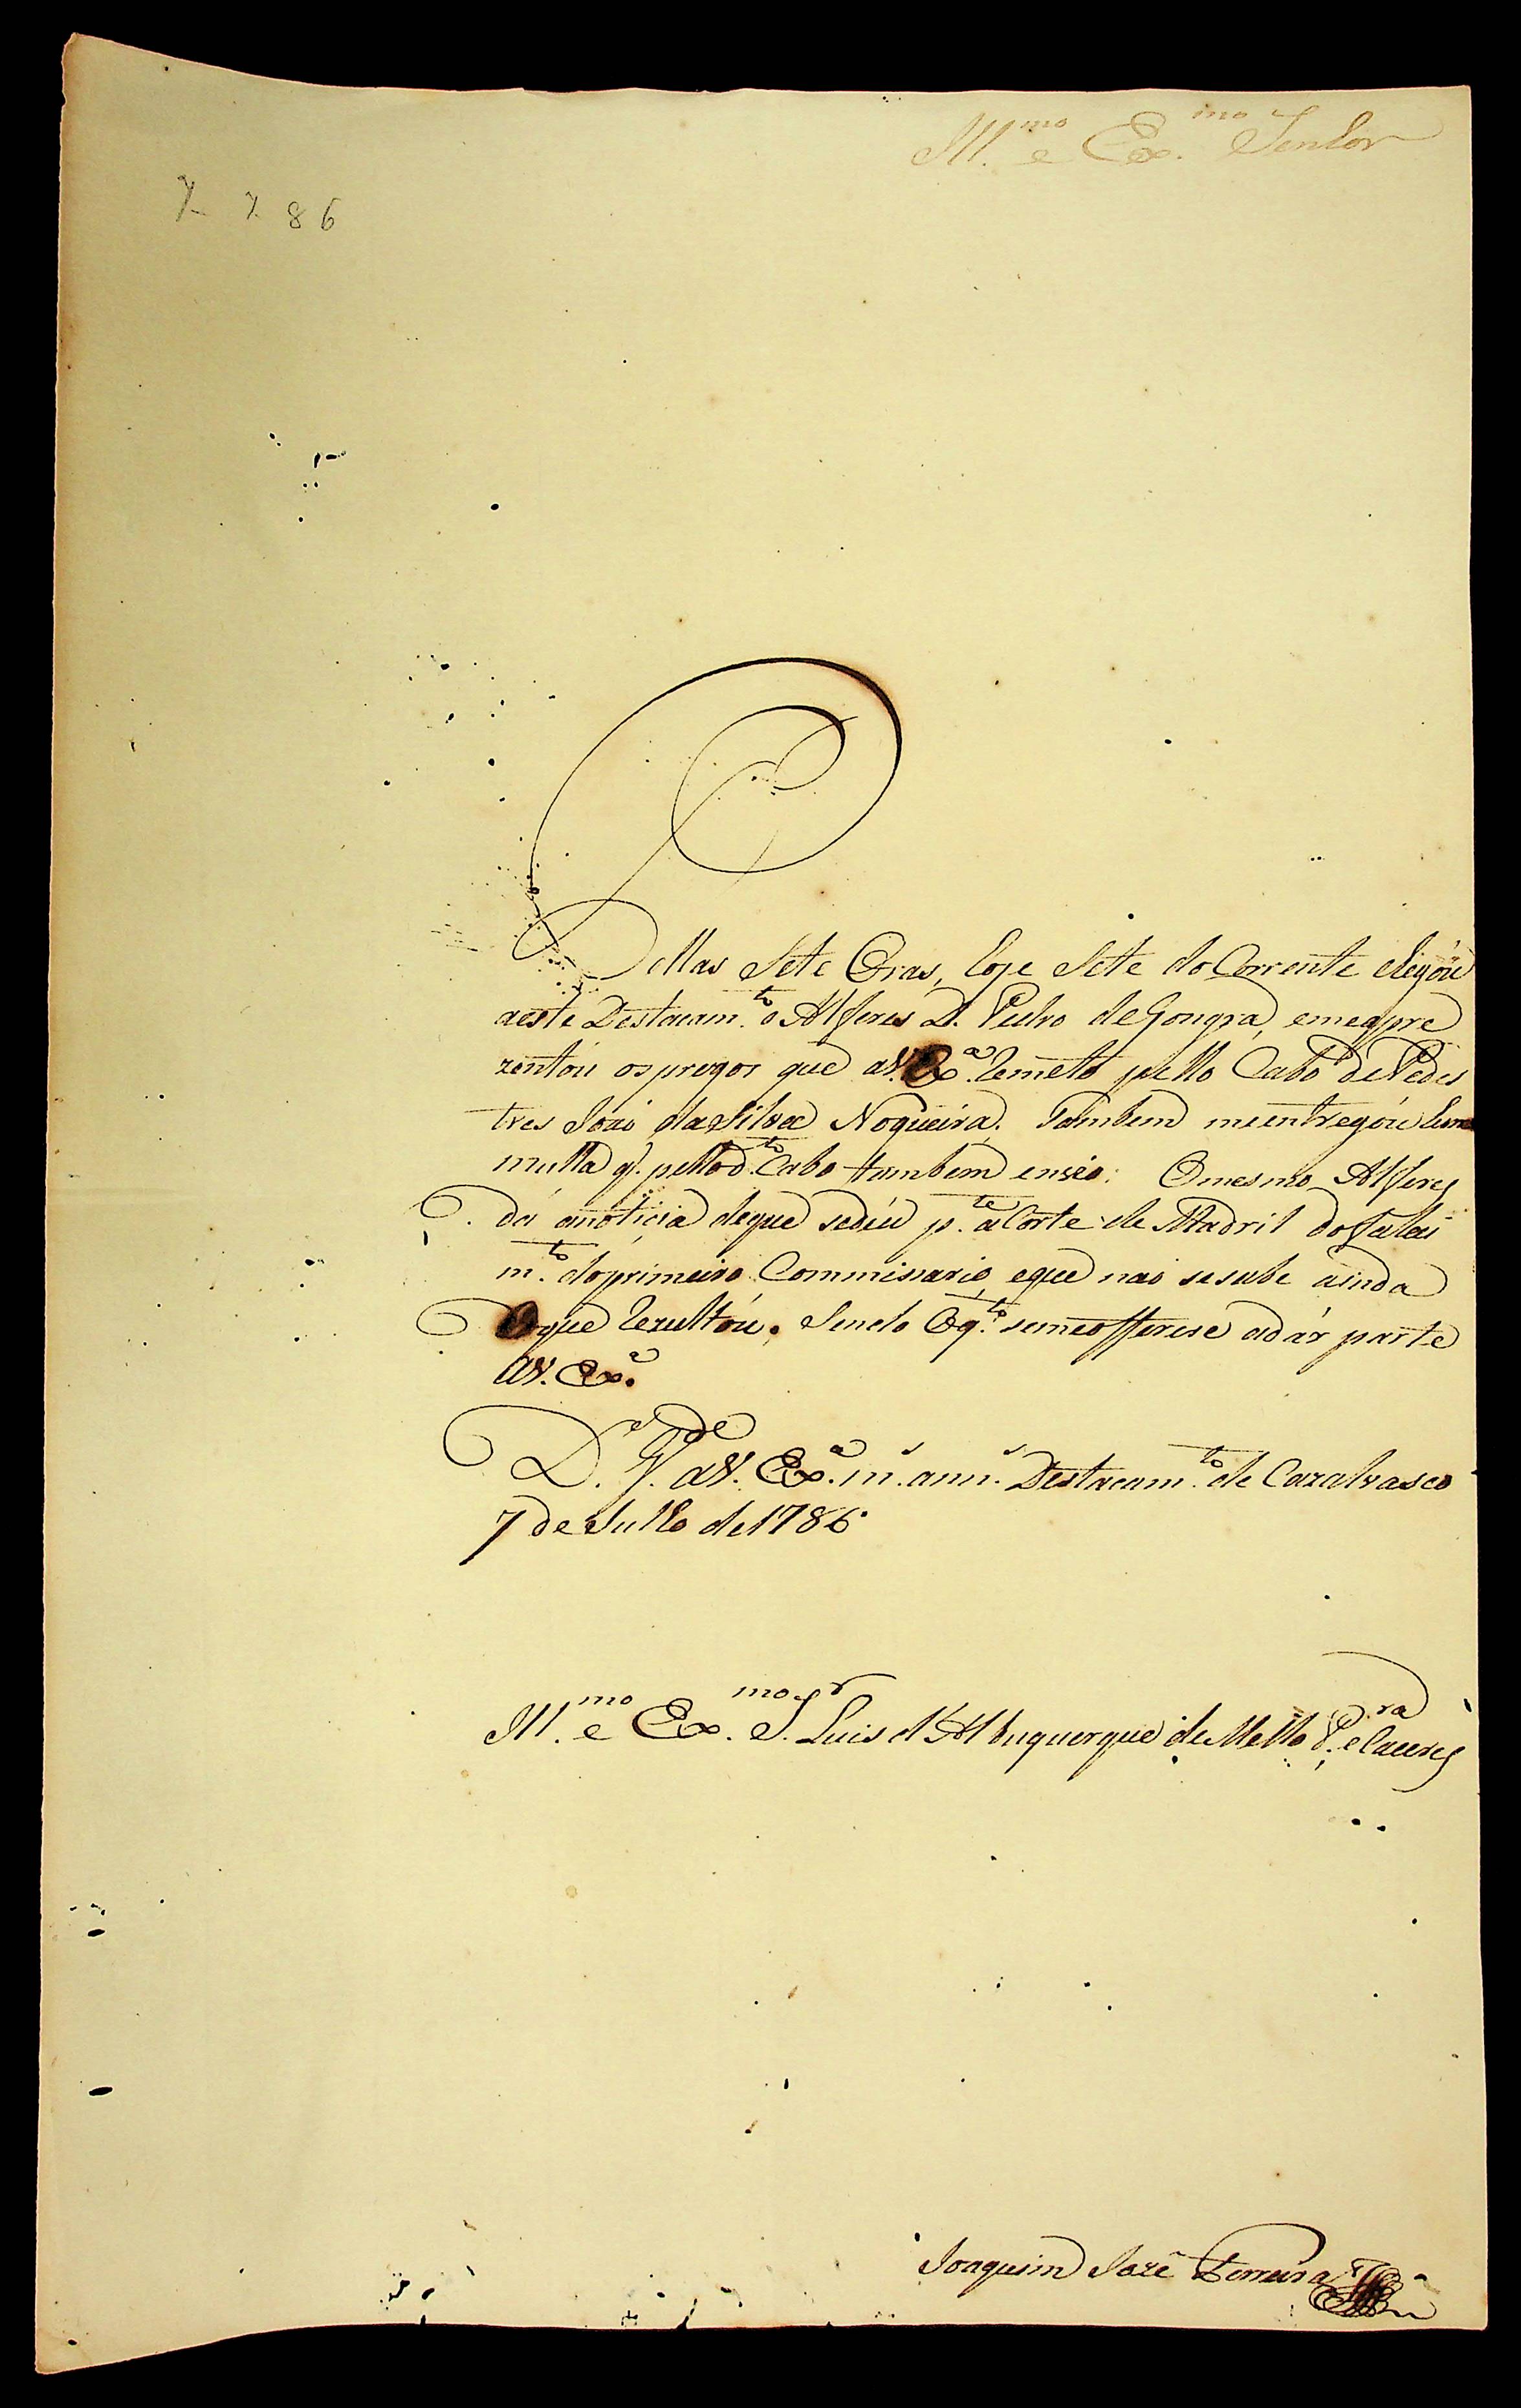 Ill.mo e Ex.mo Senhor
7 7 86
Pellas Sete Oras, hoje Sete do Corrente chegóu
aeste Destacam.to o Alferes D. Pedro de Gongra, emeapre
zentóu os pregos que aV. Ex.a Remeto pello Cabo de Pedes
tres Joaõ da Silva Nogueira. Tambem meentregóu huma
mulla q. pello d.to Cabo tambem envio. O mesmo Alferes
dá anoticia deque sedéu p.te a Corte de Madril do falai
m.to do primeiro Commissario, eque naõ sesabe ainda
Oque Rezultóu. Sendo Oq.to semeofferese adár parte
aV. Ex.a
D.s G.de aV. Ex.a m.s ann.s Destacam.to de Cazalvasco
7 de Julho de 1786
Ill.mo e Ex.mo S.r Luis d'Albuquerque de Mello P.ra e Caceres
Joaquim Jozé Ferreira